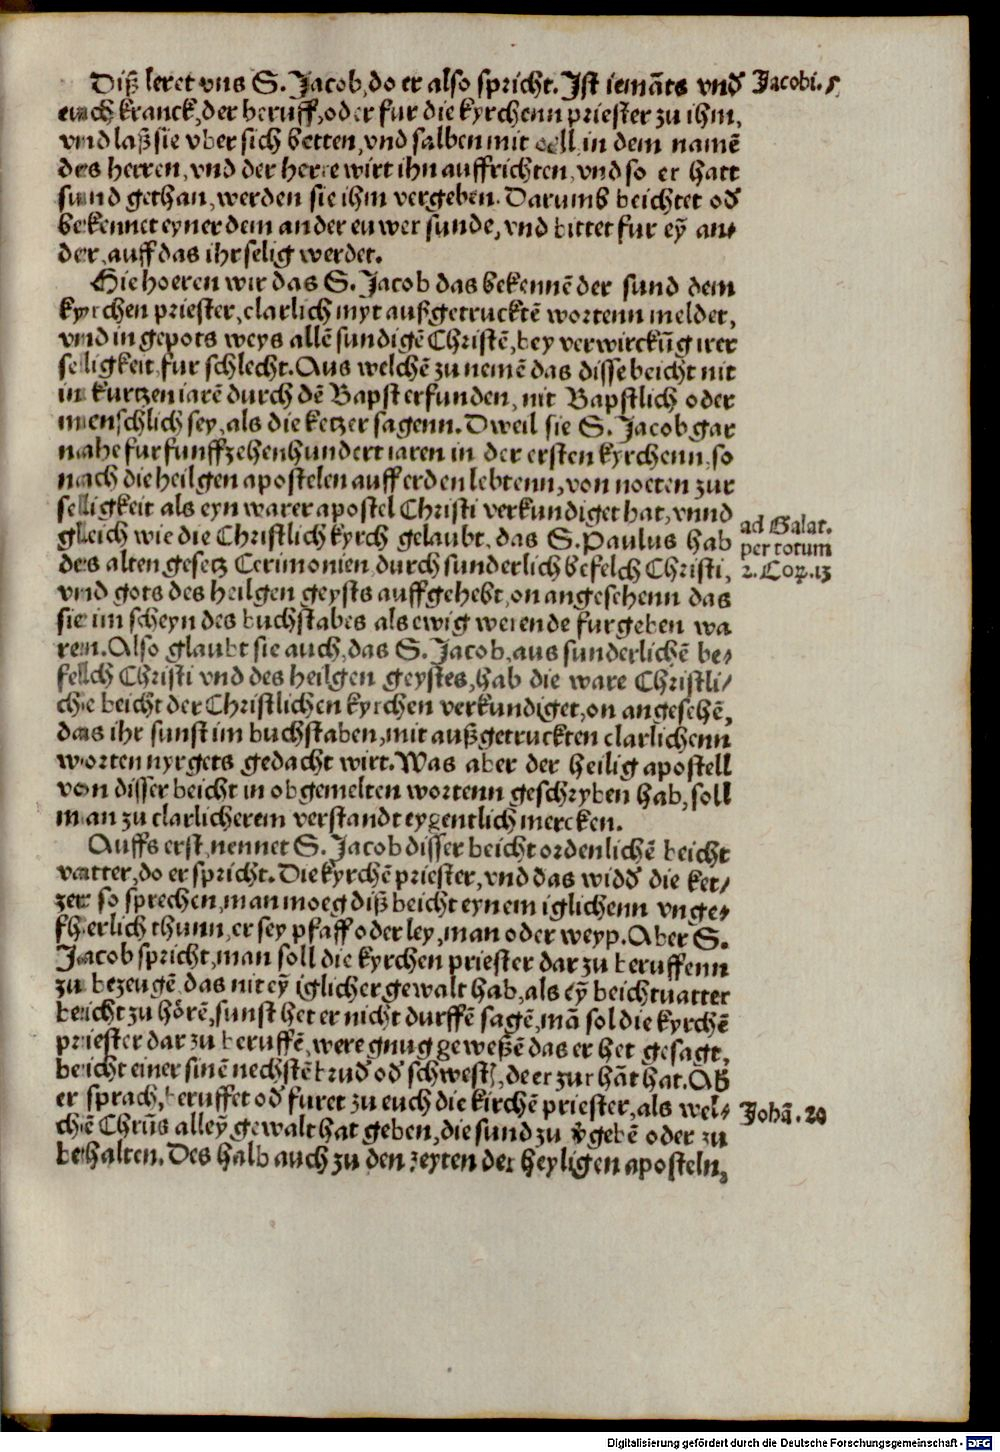 Diß leret vns S. Jacob, do er also spricht. Ist iemãts vnd̃
euch kranck, der beruff, oder fur die kyrchenn priester zu ihm,
vnd laß sie vber sich betten, vnd salben mit oell in dem namẽ
des herren, vnd der herre wirt ihn auffrichten, vnd so er hatt
sund gethan, werden sie ihm vergeben. Darumb beichtet od̃
bekennet eyner dem ander euwer sunde, vnd bittet fur eỹ an⸗
der, auff das ihr selig werdet.
Hie hoeren wir das S. Jacob das bekennẽ der sund dem
kyrchen priester, clarlich myt außgetrucktẽ wortenn meldet,
vnd in gepots weys allẽ sundigẽ Christẽ, bey verwirckũg irer
selligkeit fur schlecht. Aus welchẽ zu nemẽ das disse beicht nit
in kurtzen iarẽ durch dẽ Bapst erfunden, nit Bapstlich oder
menschlich sey, als die ketzer sagenn. Dweil sie S. Jacob gar
nahe fur funffzehenhundert iaren in der ersten kyrchenn, so
noch die heilgen apostelen auff erden lebtenn, von noeten zur
selligkeit als eyn warer apostel Christi verkundiget hat, vnnd
gleich wie die Christlich kyrch gelaubt, das S. Paulus hab
des alten gesetz Cerimonien durch sunderlich befelch Christi,
vnd gots des heilgen geysts auffgehebt, on angesehenn das
sie im scheyn des buchstabes als ewig werende furgeben wa
ren. Also glaubt sie auch, das S. Jacob, aus sunderlichẽ be⸗
felch Christi vnd des heilgen geystes, hab die ware Christli⸗
che beicht der Christlichen kyrchen verkundiget, on angesehẽ,
das ihr sunst im buchstaben, mit außgetruckten clarlichenn
worten nyrgets gedacht wirt. Was aber der heilig apostell
von disser beicht in obgemelten wortenn geschryben hab, soll
man zu clarlicherem verstandt eygentlich mercken.
Auffs erst, nennet S. Jacob disser beicht ordenlichẽ beicht
vatter, do er spricht. Die kyrchẽ priester, vnd das widd̃ die ket⸗
zer so sprechen, man moeg diß beicht eynem iglichenn vnge⸗
fherlich thunn, er sey pfaff oder ley, man oder weyp. Aber S.
Jacob spricht, man soll die kyrchen priester dar zu beruffenn
zu bezeugẽ das nit eỹ iglicher gewalt hab, als eỹ beichtuatter
beicht zu hörẽ, sunst het er nicht durffẽ sagẽ, mã sol die kyrchẽ
priester dar zu beruffẽ, were gnug geweßẽ das er het gesagt,
beicht einer sinẽ nechstẽ brud̃ od̃ schwest̃, de er zur hãt hat. Ab̃
er sprach, beruffet od̃ furet zu euch die kirchẽ priester, als wel⸗
chẽ Chrũs alleỹ gewalt hat geben, die sund zu ṽgebẽ oder zu
behalten. Des halb auch zu den zeyten der heyligen aposteln,
Jacobi. 5
ad Galat.
per totum
2. Coꝝ. 13
Johã. 20
Digitalisierung gefördert durch die Deutsche Forschungsgemeinschaft - DFG